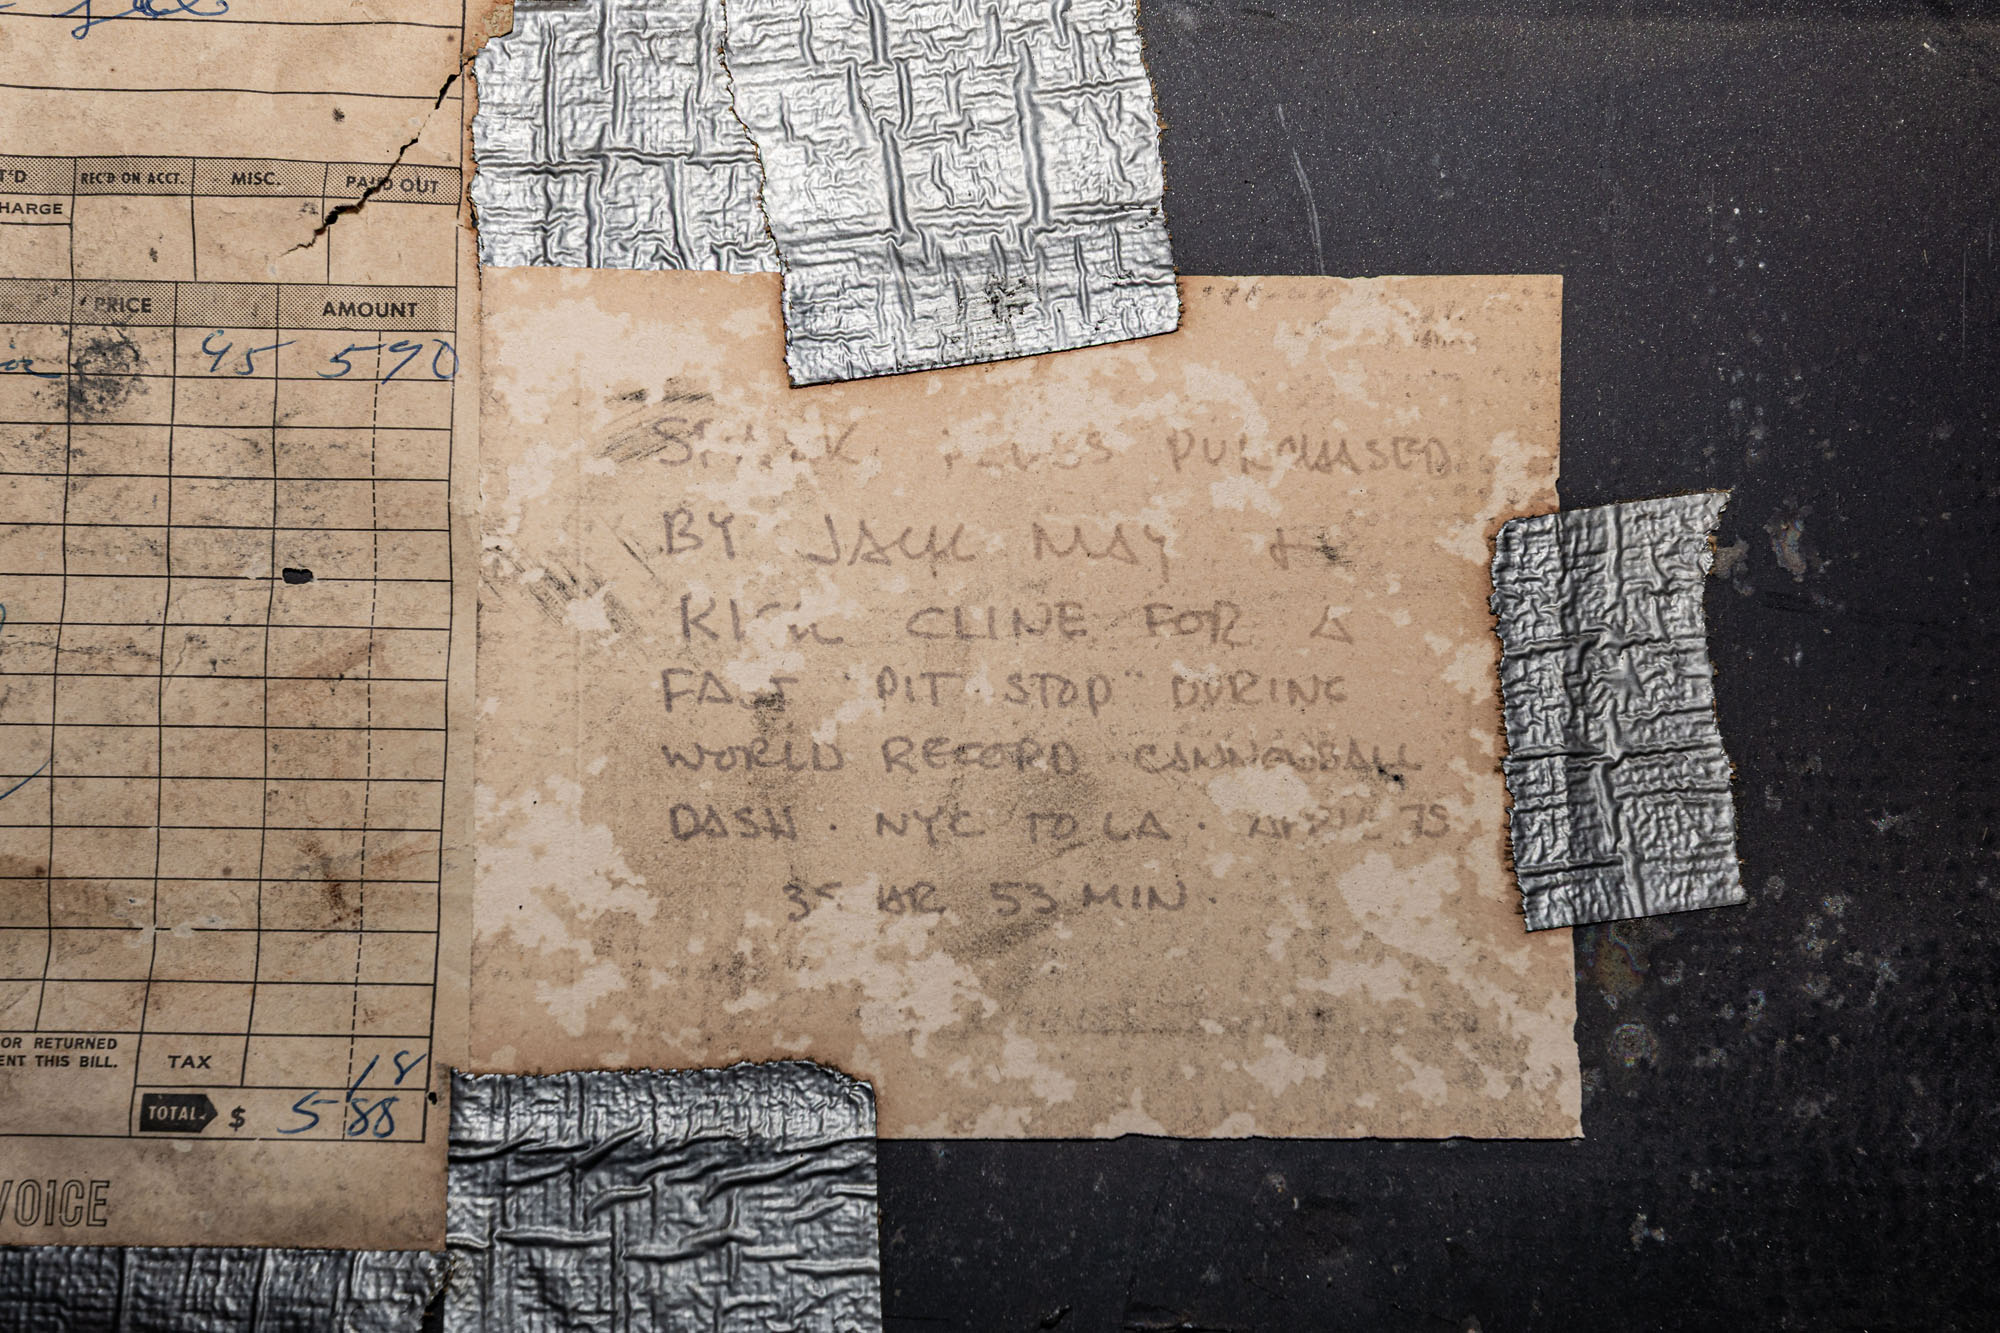 T'D REC'D ON ACCT. MISC. PAID OUT
HARGE
PRICE AMOUNT
95 5 90
OR RETURNED
ENT THIS BILL.
TAX 18
TOTAL $ 5 88
VOICE
PURCHASED
BY JACK MAY &
CLINE FOR A
FAST "PIT STOP" DURING
WORLD RECORD CANNONBALL
DASH · NYC TO LA · APRIL 75
HR 53 MIN.